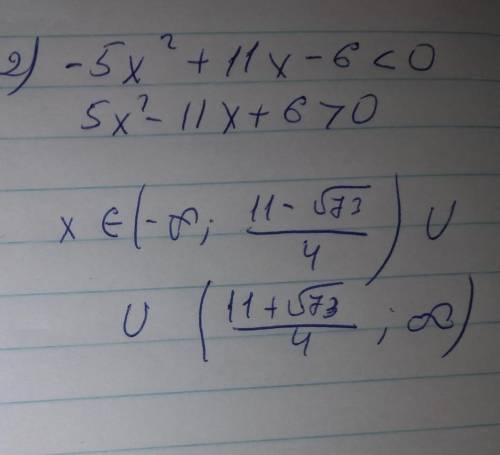 2) -5x² + 11x - 6 < 0
5x² - 11x + 6 > 0
x ∈ (-∞; (11 - √73)/4) ∪
∪ ((11 + √73)/4; ∞)